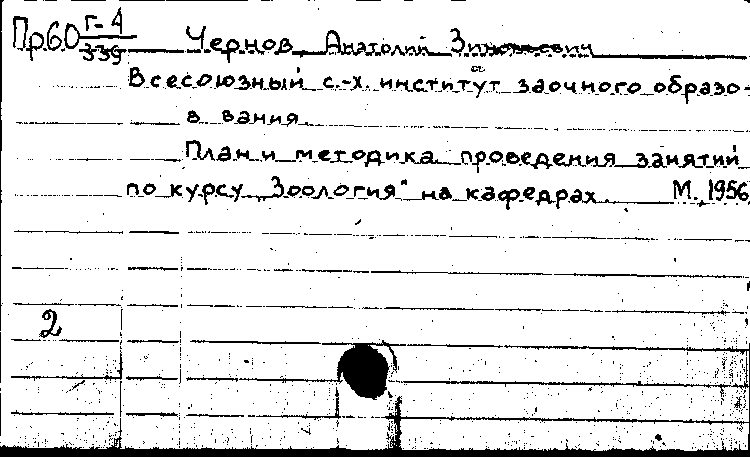 Пр60 Г-4 Чернов, Анатолий Зиновьевич
339
Всесоюзный с.-х. институт заочного образо-
в вания.
План и методика проведения занятий
по курсу „Зоология" на кафедрах. М., 1956
2